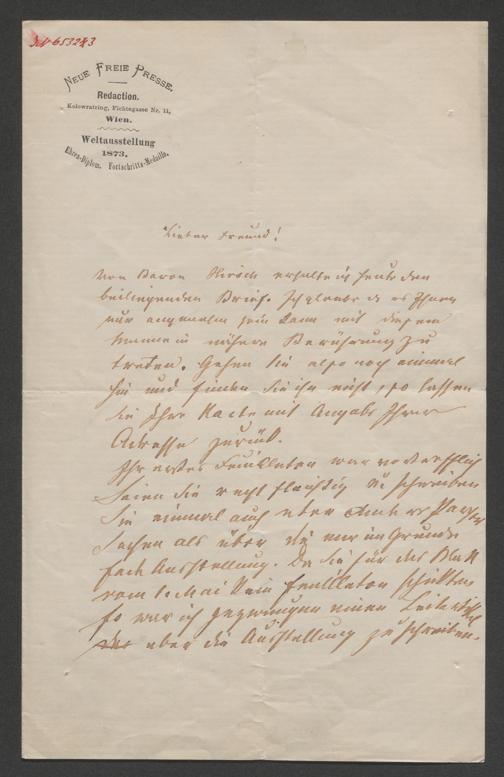 NEUE FREIE PRESSE.
Redaction.
Kolowratring, Fichtegasse Nr. 11,
Wien.
Weltausstellung
1873.
Ehren-Diplom. Fortschritts-Medaille.
Lieber Freund!
Von Baron Hirsch erhalte ich heute den
beiliegenden Brief. Ich glaube es Ihnen
nur angenehm sein kann mit diesem
Manne in nähere Berührung zu
treten. Gehen Sie also noch einmal
hin und finden Sie ihn nicht, so lassen
Sie Ihre Karte mit Angabe Ihrer
Adresse zurück.
Ihr erstes Feuilleton war vortrefflich
Seien Sie recht fleißig u schreiben
Sie einmal auch über andere Pariser
Sachen als über die
Ausstellung. Da Sie für das Blatt
vom 1. Mai kein Feuilleton schickten
so war ich gezwungen einen Leitartikel
über die Ausstellung zu schreiben.